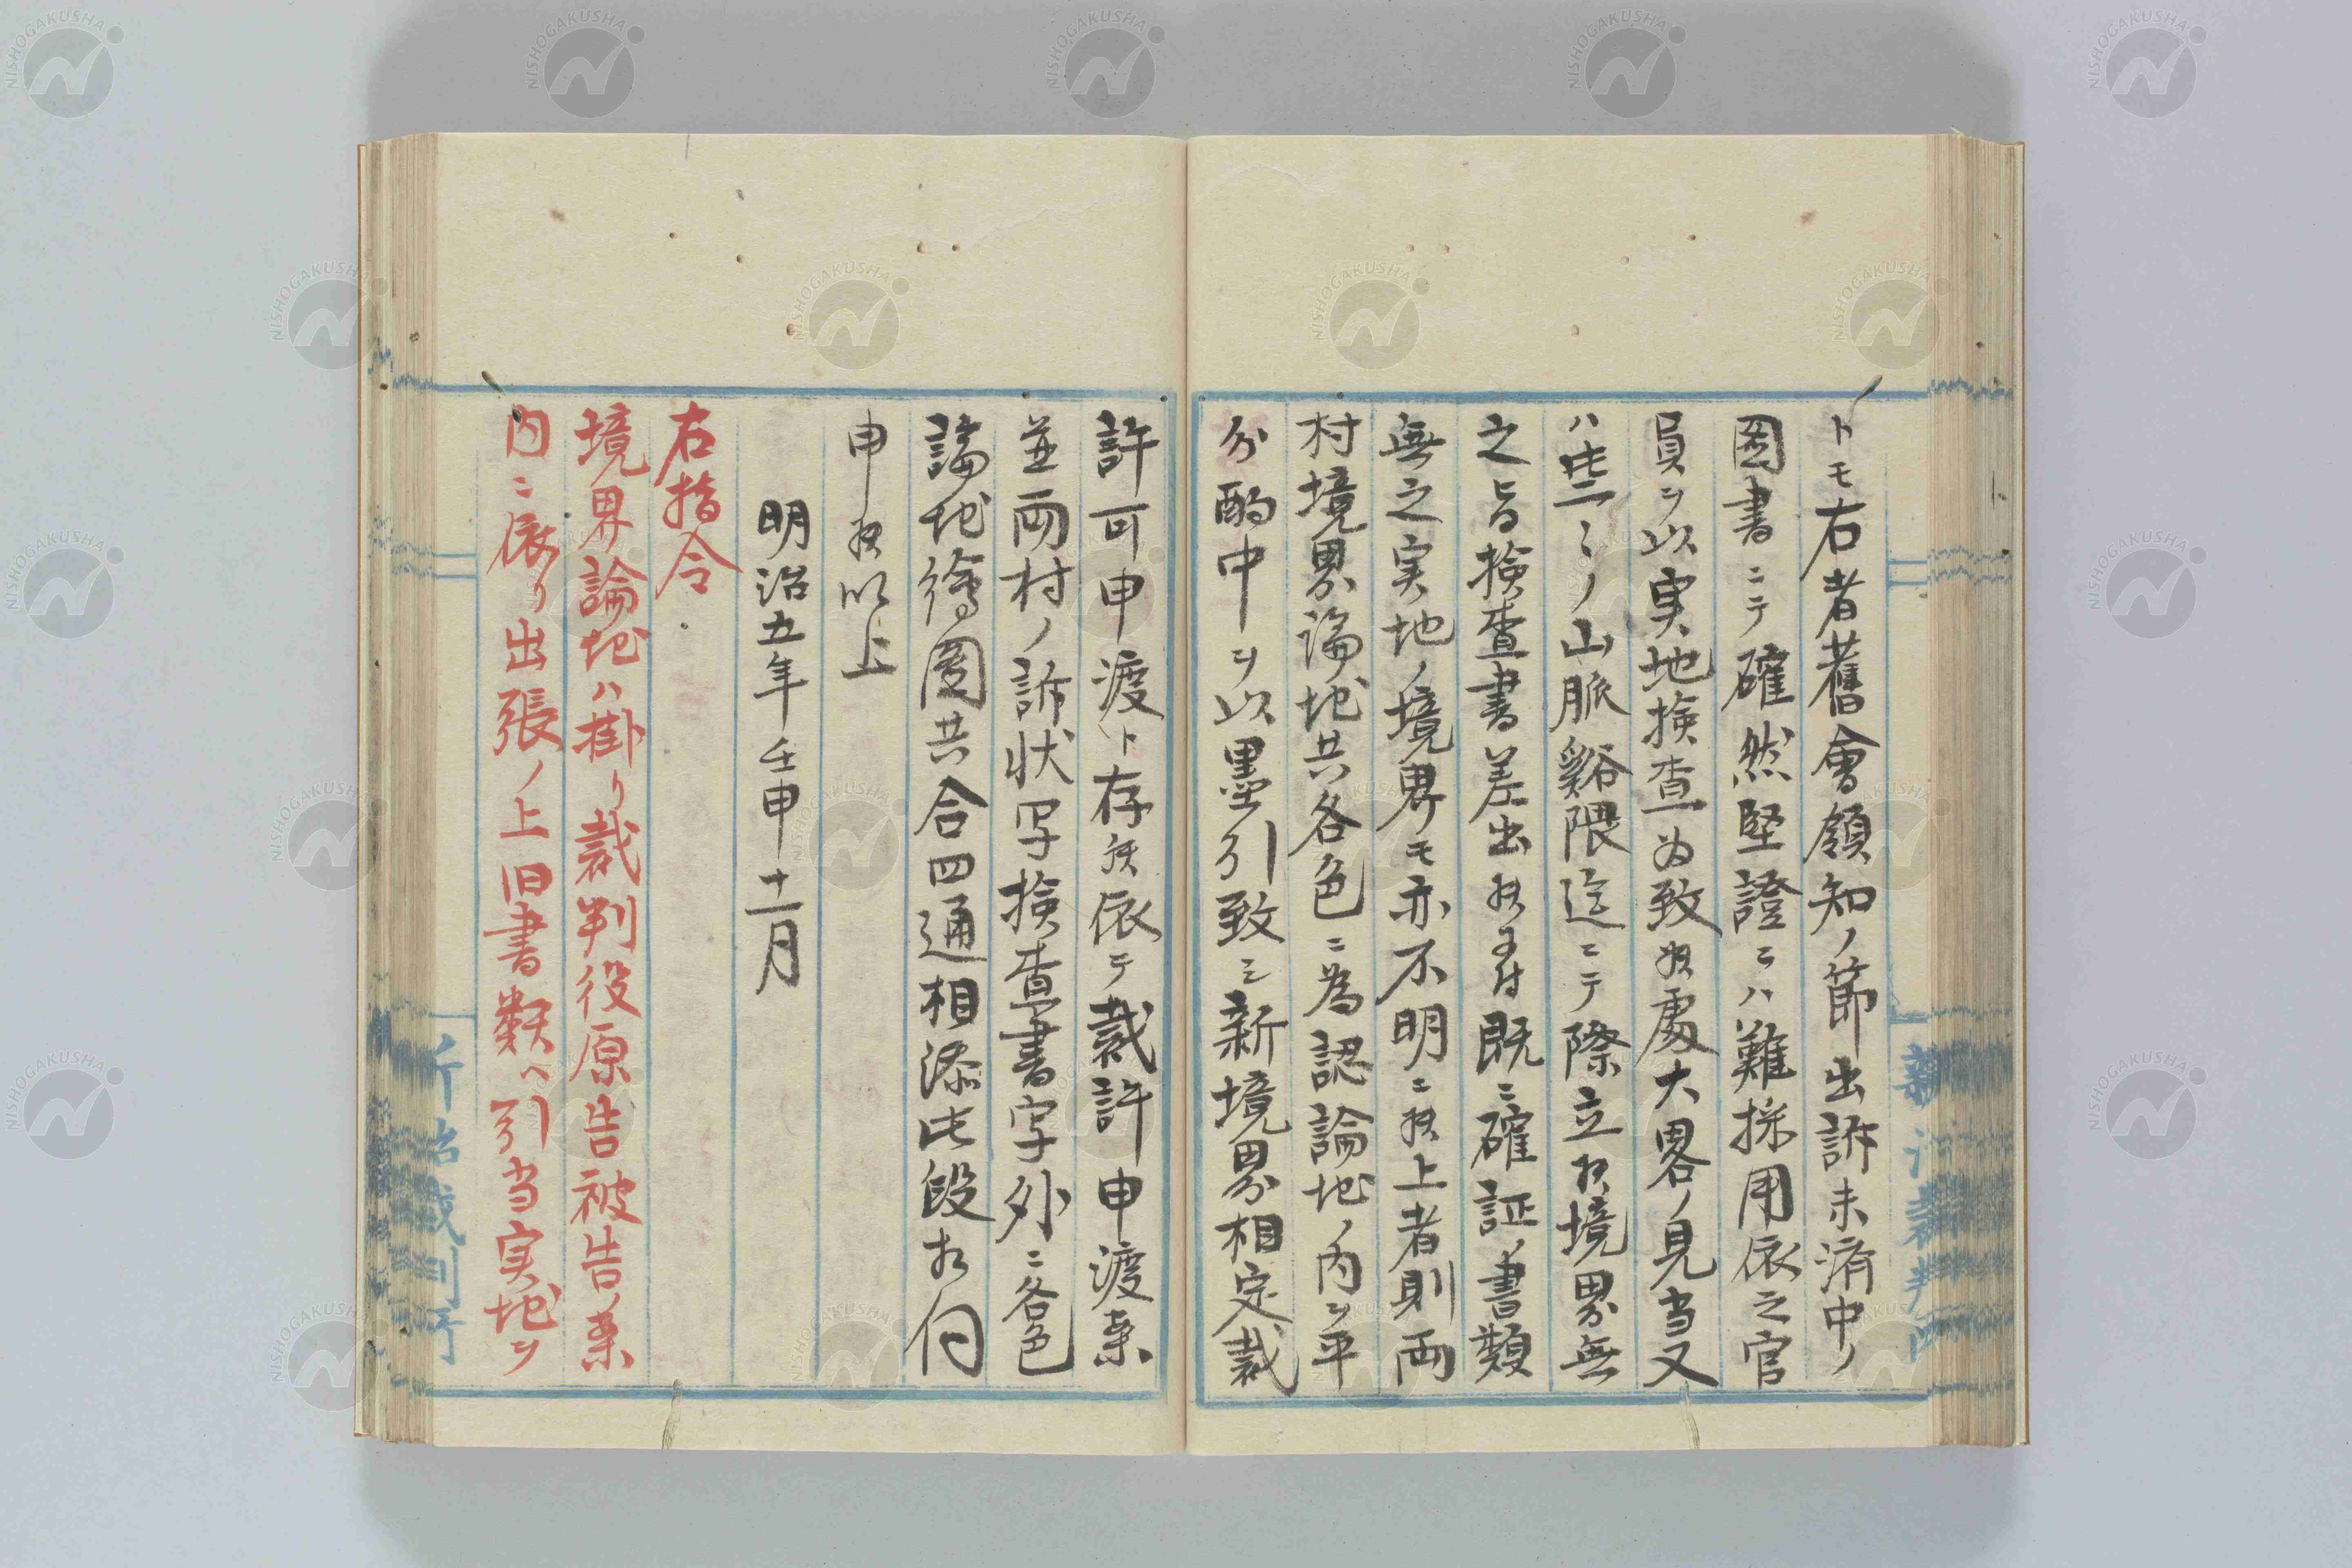 トモ右者舊會領知ノ節出訴未済中ノ
図書ニテ確然堅證ニハ難採用依之官
員ヲ以実地検査為致候處大畧ノ見当又
ハ此ノ山脈谿隈迄ニテ際立候境界無
之旨検査書差出候ニ付既ニ確証ノ書類
無之実地ノ境界モ亦不明ニ候上者則両
村境界論地共各色ニ為認論地ノ内ヲ平
分酌中ヲ以墨引致シ新境界相定裁
許可申渡ト存候依テ裁許申渡案
並両村ノ訴状写検査書写外ニ各色
論地繪図共合四通相添此段相伺
申候以上
明治五年壬申十一月
右指令
境界論地ハ掛リ裁判役原告被告ノ案
内ニ依リ出張ノ上旧書類ヘ引当実地ヲ
新治裁判所
新治裁判所
NISHOGAKUSHA